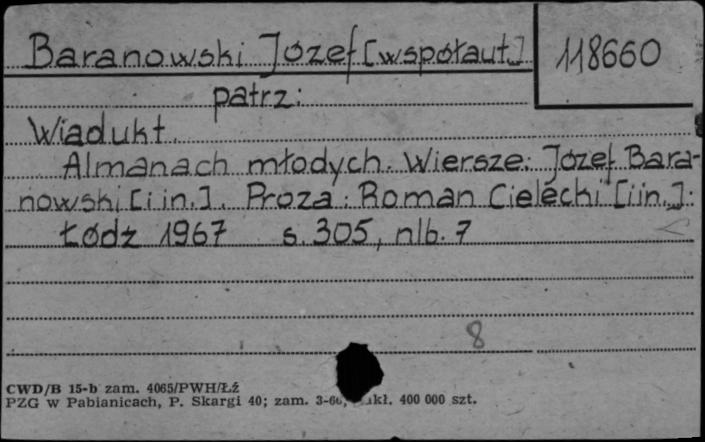 Baranowski Józef [współaut.] 118660
patrz:
Wiadukt.
Almanach młodych. Wiersze: Józef Bara-
nowski [i in.]. Proza: Roman Cielecki [i in.].
Łódź 1967 s. 305, nlb. 7
8
CWD/B 15-b zam. 4065/PWH/Łź
PZG w Pabianicach, P. Skargi 40; zam. 400 000 szt.